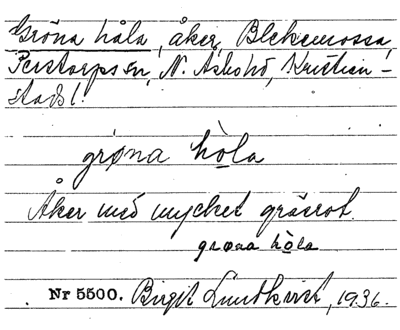 Gröna håla, åker, Blekemossa,
Perstorps sn, N. Åsbo hd, Kristian-
stads l.
grøna hòla
Åker med mycket gräsrot.
grøna hòla
Nr 5500. Birgit Lundkvist, 1936.